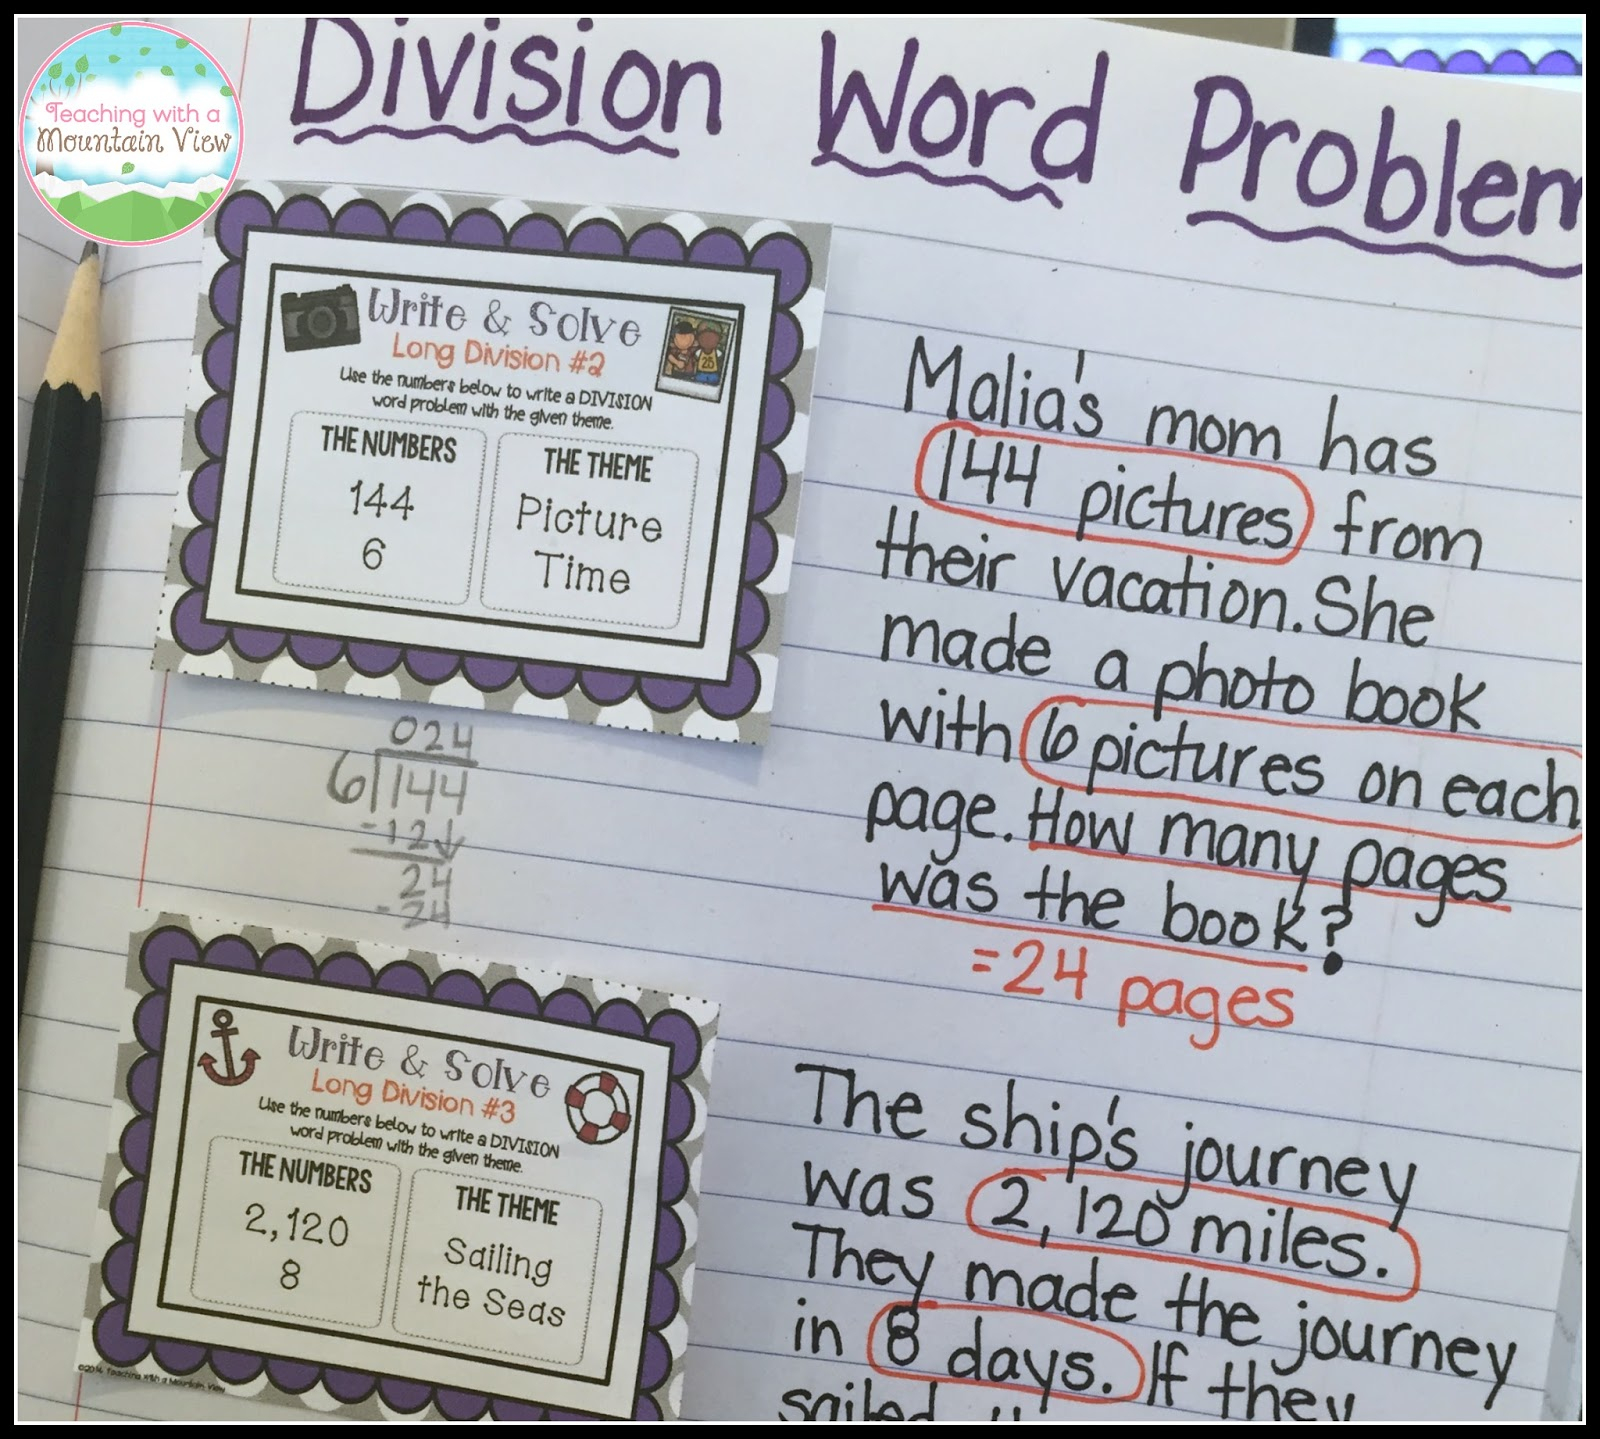 Teaching with a
Mountain View
Division Word Problem
Write & Solve
Long Division #2
Use the numbers below to write a DIVISION
word problem with the given theme.
THE NUMBERS
144
6
THE THEME
Picture
Time
25
Malia's mom has
144 pictures from
their vacation. She
made a photo book
with 6 pictures on each
page. How many pages
was the book?
=24 pages
024
6 144
-12
24
-24
Write & Solve
Long Division #3
Use the numbers below to write a DIVISION
word problem with the given theme.
THE NUMBERS
2,120
8
THE THEME
Sailing
the Seas
©2014 Teaching with a Mountain View
The ship's journey
was 2,120 miles.
They made the journey
in 8 days. If they
sailed